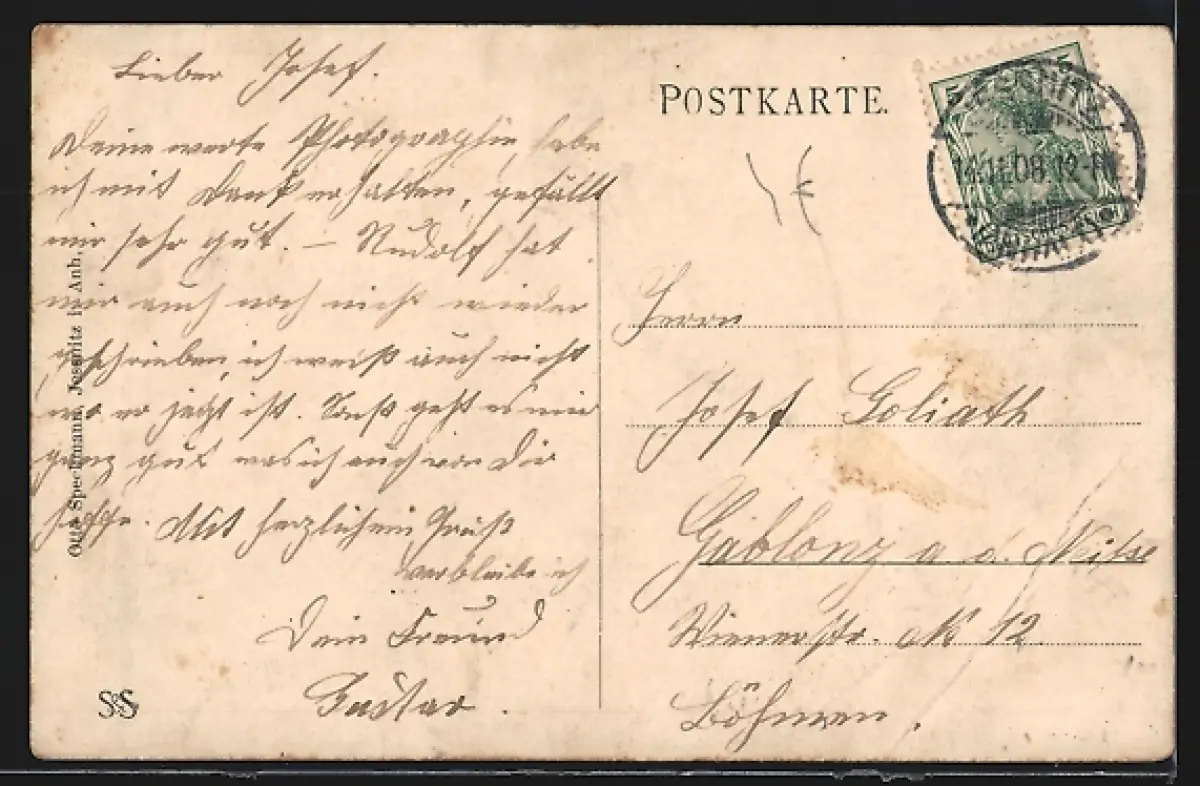 Lieber Josef.
Deine werte Photographie habe
ich mit Dank erhalten, gefällt
mir sehr gut. – Rudolf hat
mir auch noch nicht wieder
geschrieben, ich weiß auch nicht
wo er jetzt ist. Sonst geht es mir
ganz gut was ich auch von Dir
hoffe. Mit herzlichem Gruß
verbleibe ich
Dein Freund
Gustav.
SS
Otto Speckmann, Jessnitz i. Anh.
POSTKARTE.
JESSNITZ
14.11.08. 12-1N
(ANHALT)
5
5
Herrn
Josef Goliath
Gablonz a. d. Neiße
Wienerstr. No 12.
Böhmen.